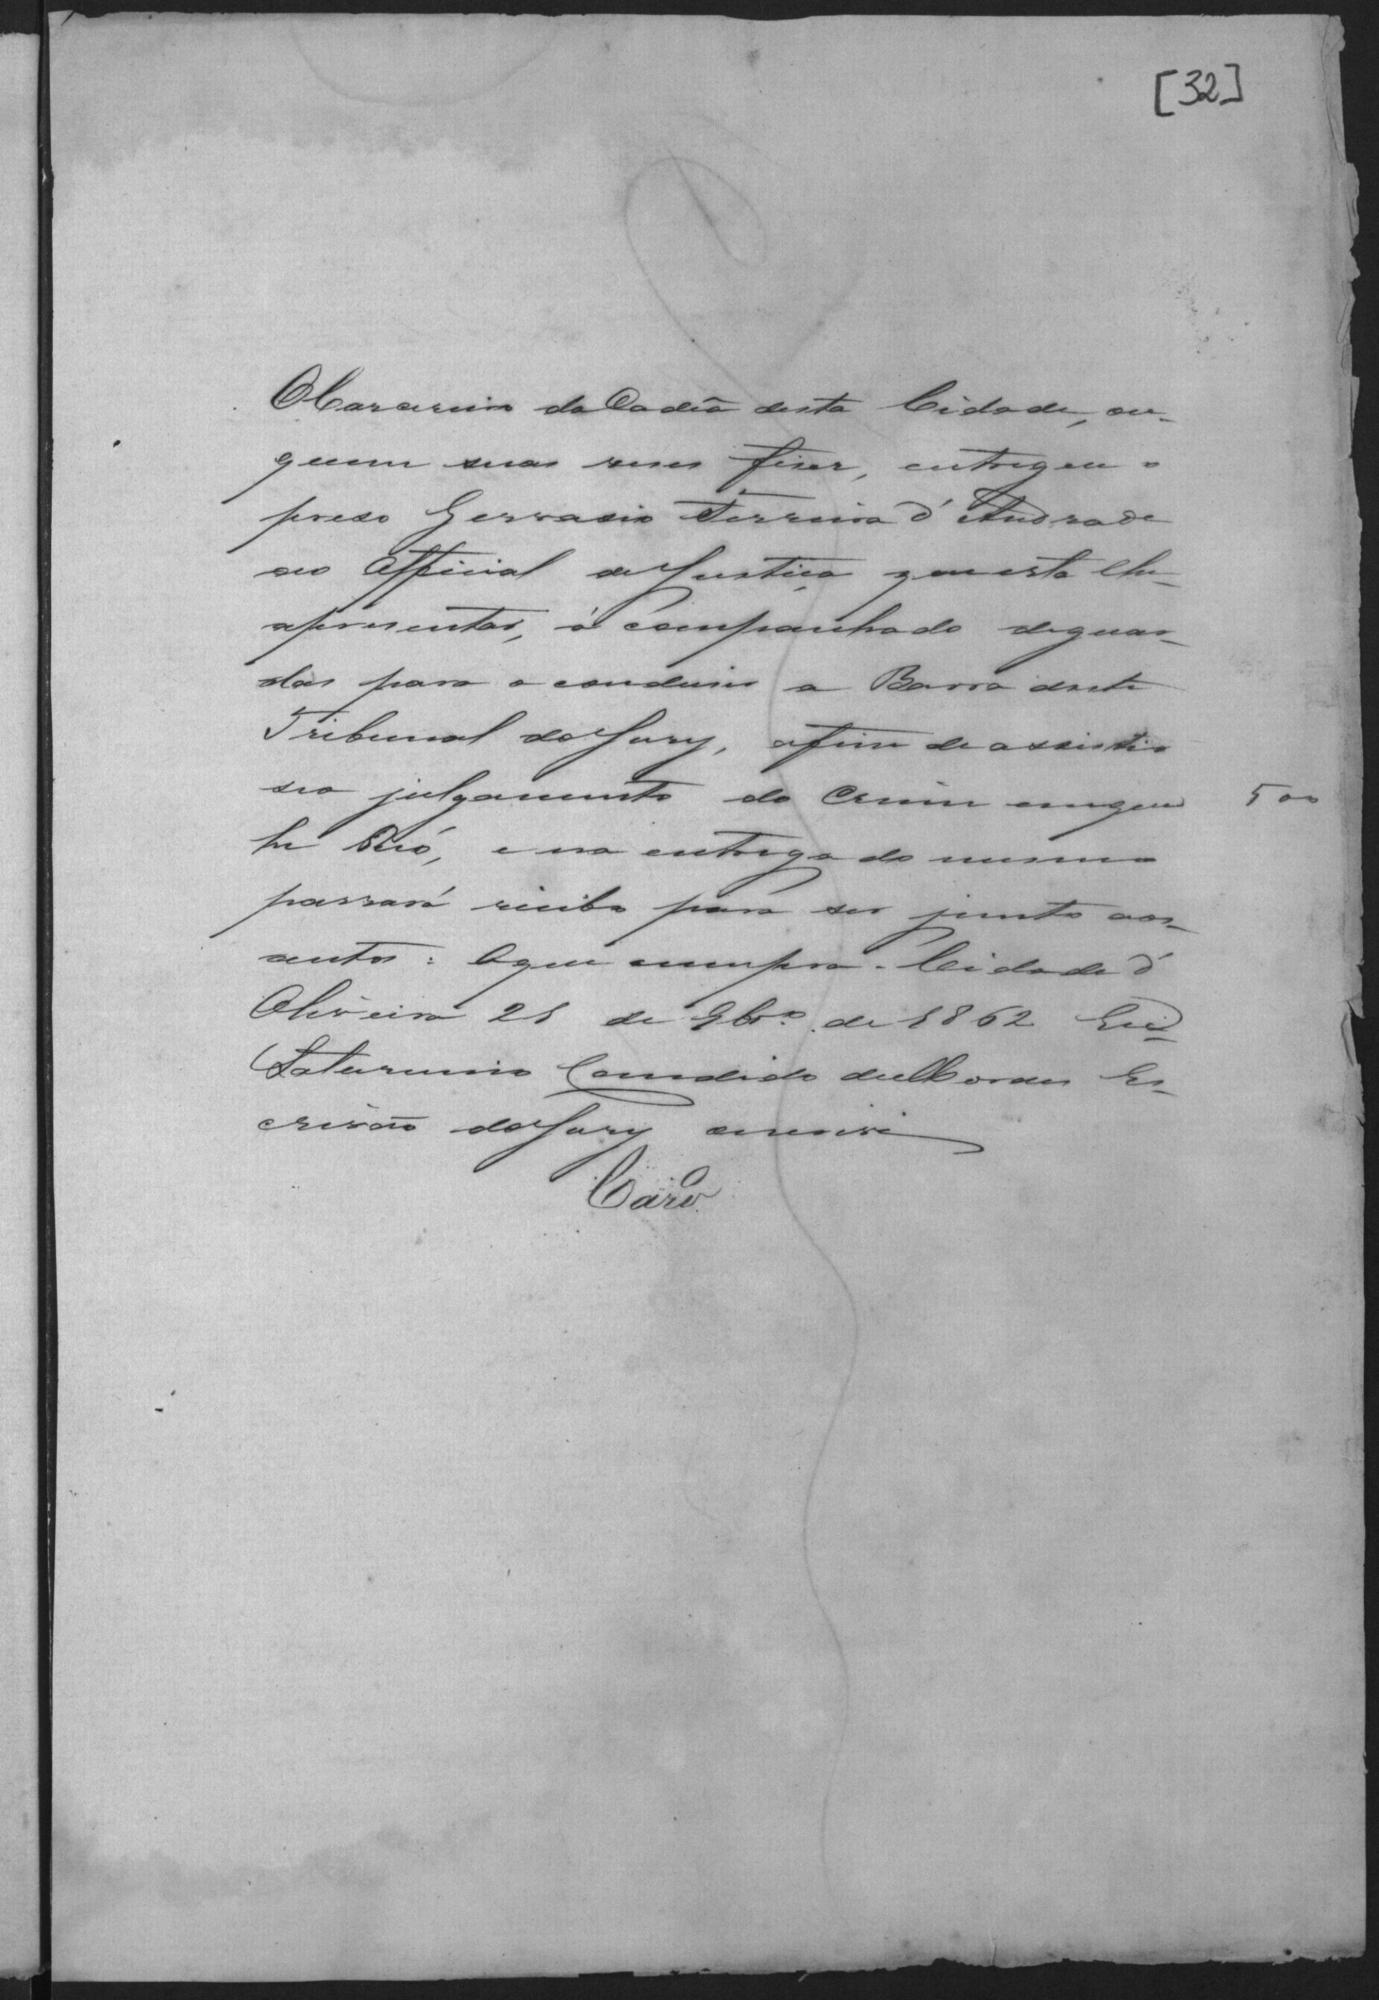 [32]
O Carcereiro da Cadêa desta Cidade, ou
quem suas veses fizer, entregue o
preso Gervasio Ferreira d'Andrade
ao Official de Justiça que esta lhe
apresentar, á companhado de guar-
das para o conduzir a Barra deste
Tribunal do Jury, afim de assistir
seo julgamento do Crime em que 500
he Reó, e na entrega do mesmo
passará recibo para ser junto aos
autos: O que cumpra. Cidade d'
Oliveira 21 de 9br.o de 1862 Eu
Saturnino Candido de Moraes Es-
crivão do Jury escrivi